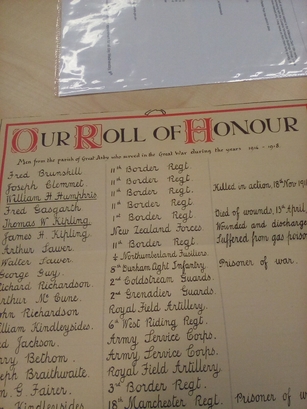 OUR ROLL OF HONOUR
Men from the parish of Great Asby who served in the Great War during the years 1914 - 1918.
Fred Brunskill 11th Border Regt
Joseph Clemmet 11th Border Regt
William H. Humphris 11th Border Regt. Killed in action, 18th Nov 191
Fred Gasgarth 11th Border Regt
Thomas W. Kipling 1st Border Regt Died of wounds, 13th April
James H. Kipling New Zealand Forces Wounded and discharge
Arthur Sawer 11th Border Regt. Suffered from gas poison
Walter Sawer 4th Northumberland Fusiliers
George Guy. 8th Durham Light Infantry Prisoner of war.
Richard Richardson. 2nd Coldstream Guards
Arthur Mc Cune. 2nd Grenadier Guards
ohn Richardson Royal Field Artillery.
illiam Kindleysides. 6th West Riding Regt.
ed Jackson. Army Service Corps.
rry Bethom. Army Service Corps.
eph Braithwaite. Royal Field Artillery.
G. Fairer. 3rd Border Regt.
Kindleysides 18th Manchester Regt. Prisoner of w